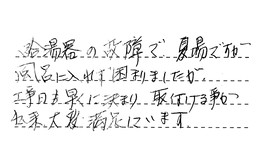 給湯器の故障で夏場ですが
風呂に入れず困りましたが
工事日も早くに決まり取付ける事が
出来大変満足しています。